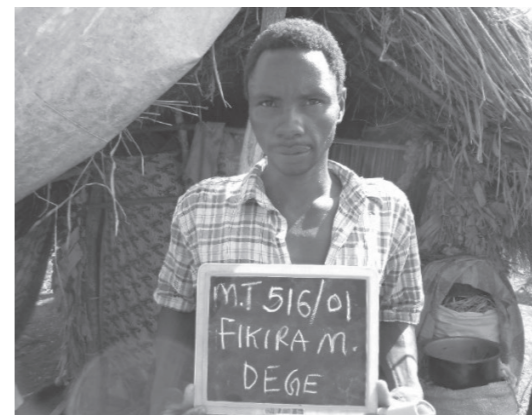 M.T 516/01
FIKIRA M.
DEGE